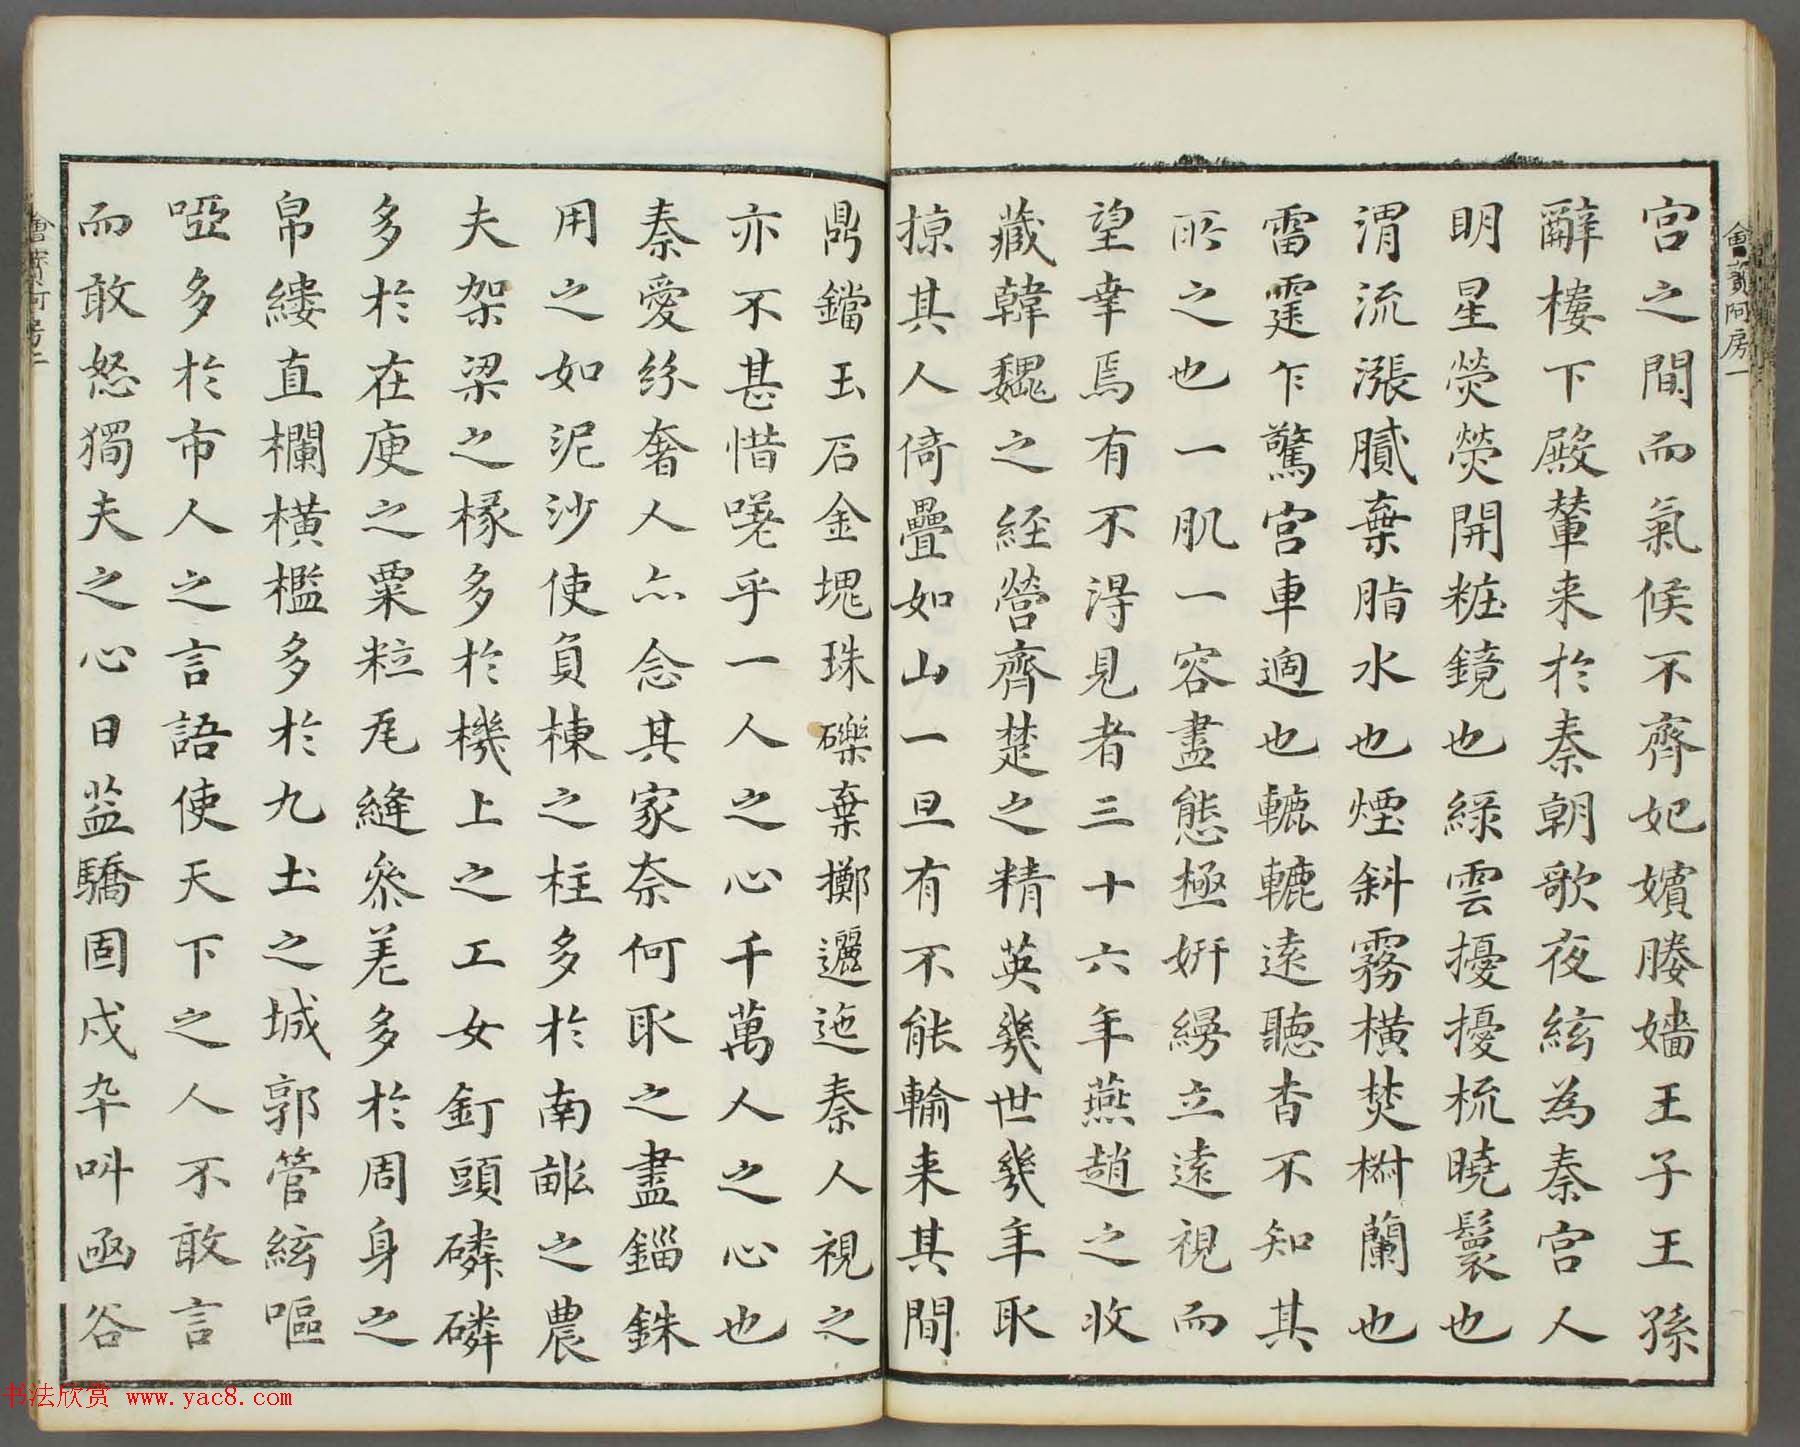 宮之間而氣候不齊妃嬪媵嬙王子王孫
辭樓下殿輦来於秦朝歌夜絃為秦宮人
明星熒熒開粧鏡也綠雲擾擾梳曉鬟也
渭流漲膩棄脂水也煙斜霧橫焚椒蘭也
雷霆乍驚宮車過也轆轆遠聽杳不知其
所之也一肌一容盡態極妍縵立遠視而
望幸焉有不得見者三十六年燕趙之收
藏韓魏之經營齊楚之精英幾世幾年取
掠其人倚疊如山一旦有不能輸来其間
鼎鐺玉石金塊珠礫棄擲邐迤秦人視之
亦不甚惜嗟乎一人之心千萬人之心也
秦愛紛奢人亦念其家奈何取之盡錙銖
用之如泥沙使負棟之柱多於南畝之農
夫架梁之椽多於機上之工女釘頭磷磷
多於在庾之粟粒瓦縫參差多於周身之
帛縷直欄橫檻多於九土之城郭管絃嘔
啞多於市人之言語使天下之人不敢言
而敢怒獨夫之心日益驕固戍卒叫函谷
阿房一
書法欣赏 www.yac8.com